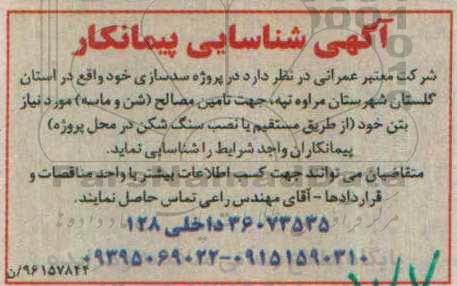 آگهی شناسایی پیمانکار
شرکت معتبر عمرانی در نظر دارد در پروژه سدسازی خود واقع در استان
گلستان شهرستان مراوه تپه، جهت تامین مصالح (شن و ماسه) مورد نیاز
بتن خود (از طریق مستقیم یا نصب سنگ شکن در محل پروژه)
پیمانکاران واجد شرایط را شناسایی نماید.
متقاضیان می توانند جهت کسب اطلاعات بیشتر با واحد مناقصات و
قراردادها - آقای مهندس راعی تماس حاصل نمایند.
۳۶۰۷۳۵۳۵ داخلی ۱۲۸
۰۹۳۹۵۰۶۹۰۲۲-۰۹۱۵۱۵۹۰۳۱۰
۹۶۱۵۷۸۴۴/ن
۱۰/۷